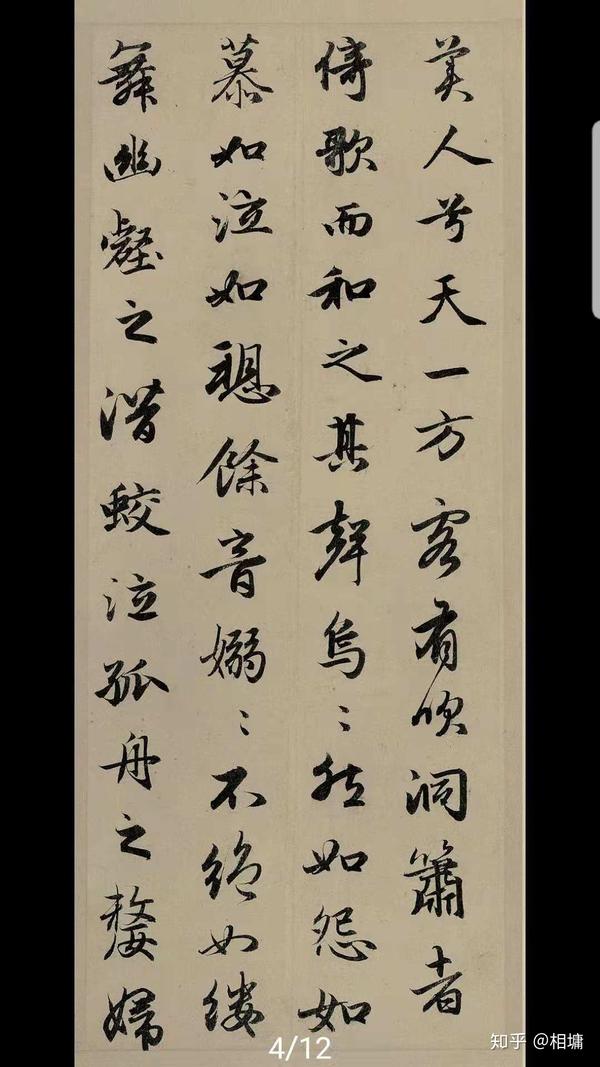 美人兮天一方客有吹洞簫者
倚歌而和之其聲烏〻然如怨如
慕如泣如愬餘音嫋〻不絕如縷
舞幽壑之潛蛟泣孤舟之嫠婦
4/12
知乎 @相墉